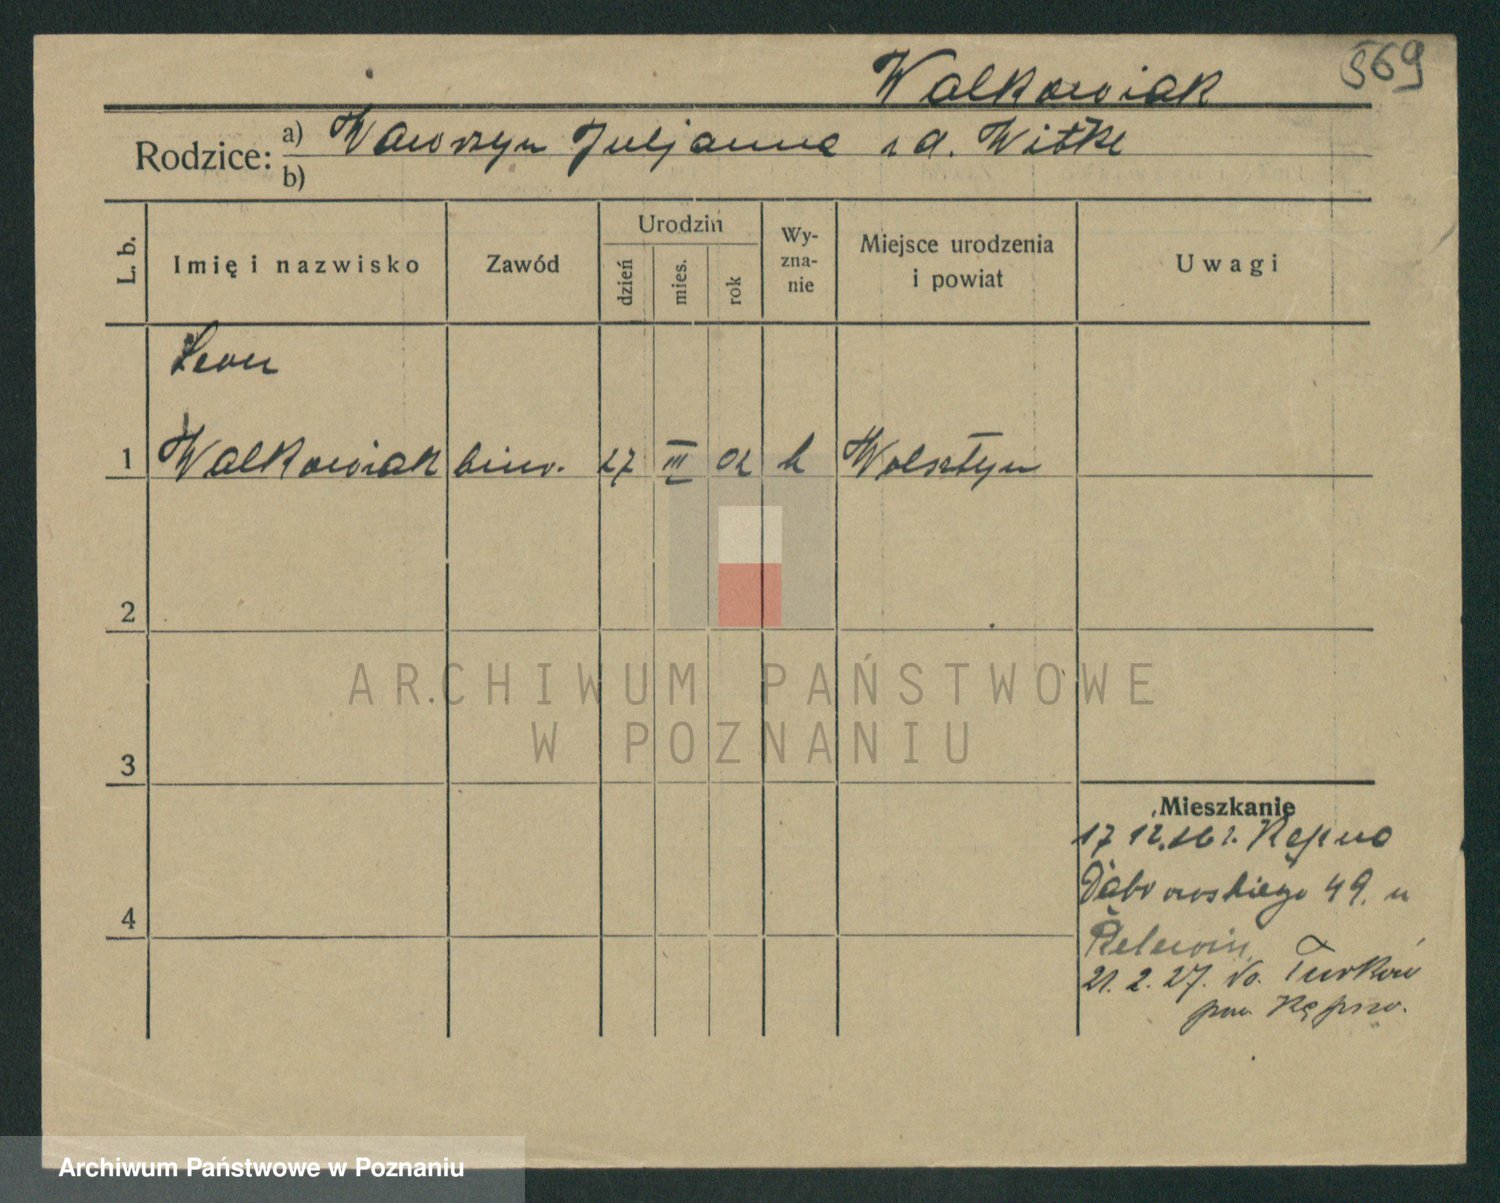 569
Walkowiak
Rodzice: a) Wawrzyn Juljanna r d. Witke
b)
L. b. Imię i nazwisko Zawód Urodzin dzień mies. rok Wy-zna-nie Miejsce urodzenia i powiat Uwagi
Leon
1 Walkowiak biur. 27 III 02 k Wolsztyn
2
ARCHIWUM PAŃSTWOWE
W POZNANIU
3
Mieszkanie
17 12.26 z. Kępno
Dąbrowskiego 49. u
4
21. 2. 27. do. Turków
pow Kępno.
Archiwum Państwowe w Poznaniu